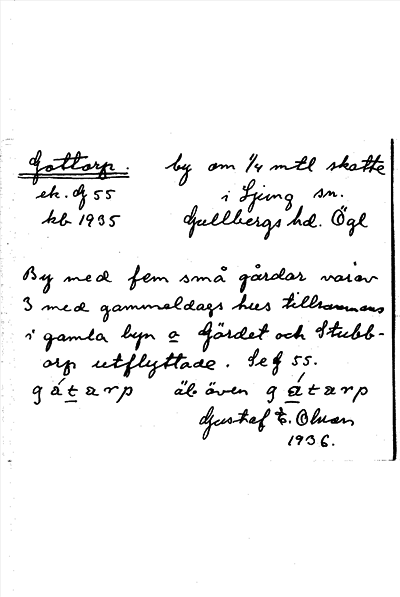 Gottorp. by om 1/4 mtl skatte
ek. g 55 i Ljung sn.
kb 1935 Gullbergs hd. Ögl
By med fem små gårdar varav
3 med gammeldags hus tillsammans
i gamla byn o Gärdet och Stubb-
orp utflyttade. Se g 55.
gátarp äb även gátarp
Gustaf E. Olsson
1936.